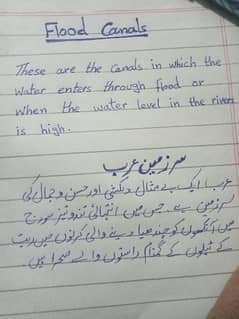 Flood Canals
These are the canals in which the
water enters through flood or
when the water level in the rivers
is high.
سرزمین عرب
عرب ایک بے مثال دلکشی اور حسن و جمال کی
سرزمین ہے۔ جس میں انتہائی تند و تیز سورج
میں آنکھوں کو چندھیا دینے والی کرنوں میں ریت
کے ٹیلوں کے گمنام راستوں والے صحرا ہیں